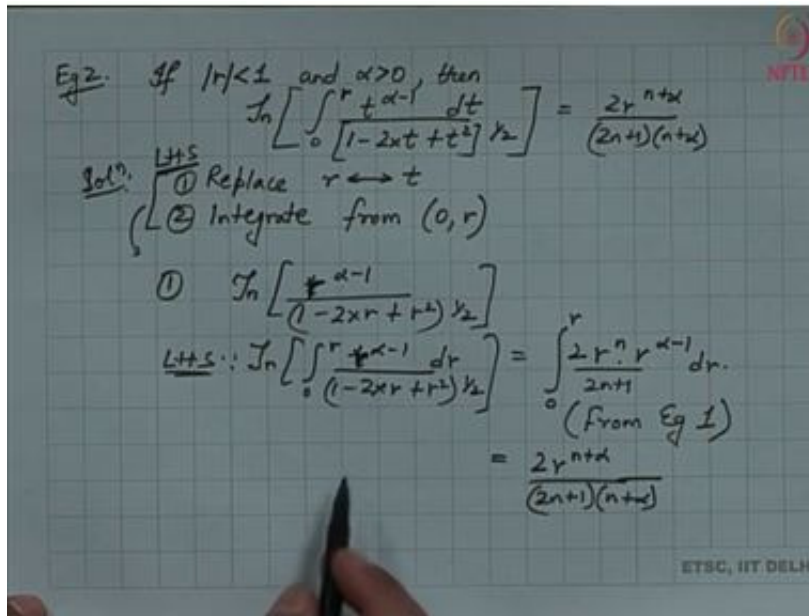 NPTEL
Eg 2. If |r|<1 and α>0, then
𝒥n[∫₀^r t^(α-1) dt / [1-2xt+t²]^(1/2)] = 2r^(n+α) / (2n+1)(n+α)
Solⁿ. LHS
① Replace r ⟷ t
② Integrate from (0, r)
① 𝒥n[r^(α-1) / (1-2xr+r²)^(1/2)]
LHS: 𝒥n[∫₀^r r^(α-1) dr / (1-2xr+r²)^(1/2)] = ∫₀^r 2r^n · r^(α-1) / 2n+1 dr.
(From Eg 1)
= 2r^(n+α) / (2n+1)(n+α)
ETSC, IIT DELH